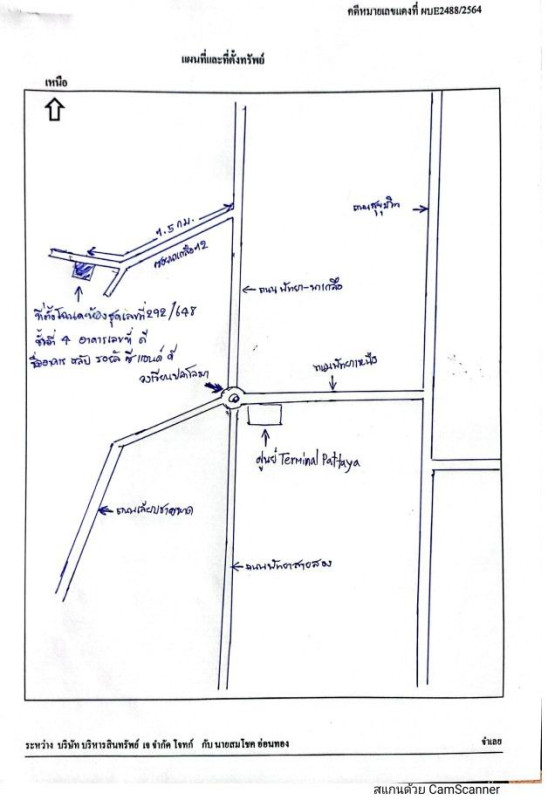 คดีหมายเลขแดงที่ ผบE2488/2564
แผนที่และที่ตั้งทรัพย์
เหนือ
1.5 กม.
ซอยนาเกลือ 12
ถนนสุขุมวิท
ถนน พัทยา-นาเกลือ
ที่ตั้งโฉนดห้องชุดเลขที่ 292/648
ชั้นที่ 4 อาคารเลขที่ ดี
ชื่ออาคาร คลับ รอยัล ซี แอนด์ ดี
วงเวียนปลาโลมา
ถนนพัทยาเหนือ
ศูนย์ Terminal Pattaya
ถนนเลียบชายหาด
ถนนพัทยาสายสอง
ระหว่าง บริษัท บริหารสินทรัพย์ เจ จำกัด โจทก์ กับ นายสมโชค อ่อนทอง
จำเลย
สแกนด้วย CamScanner